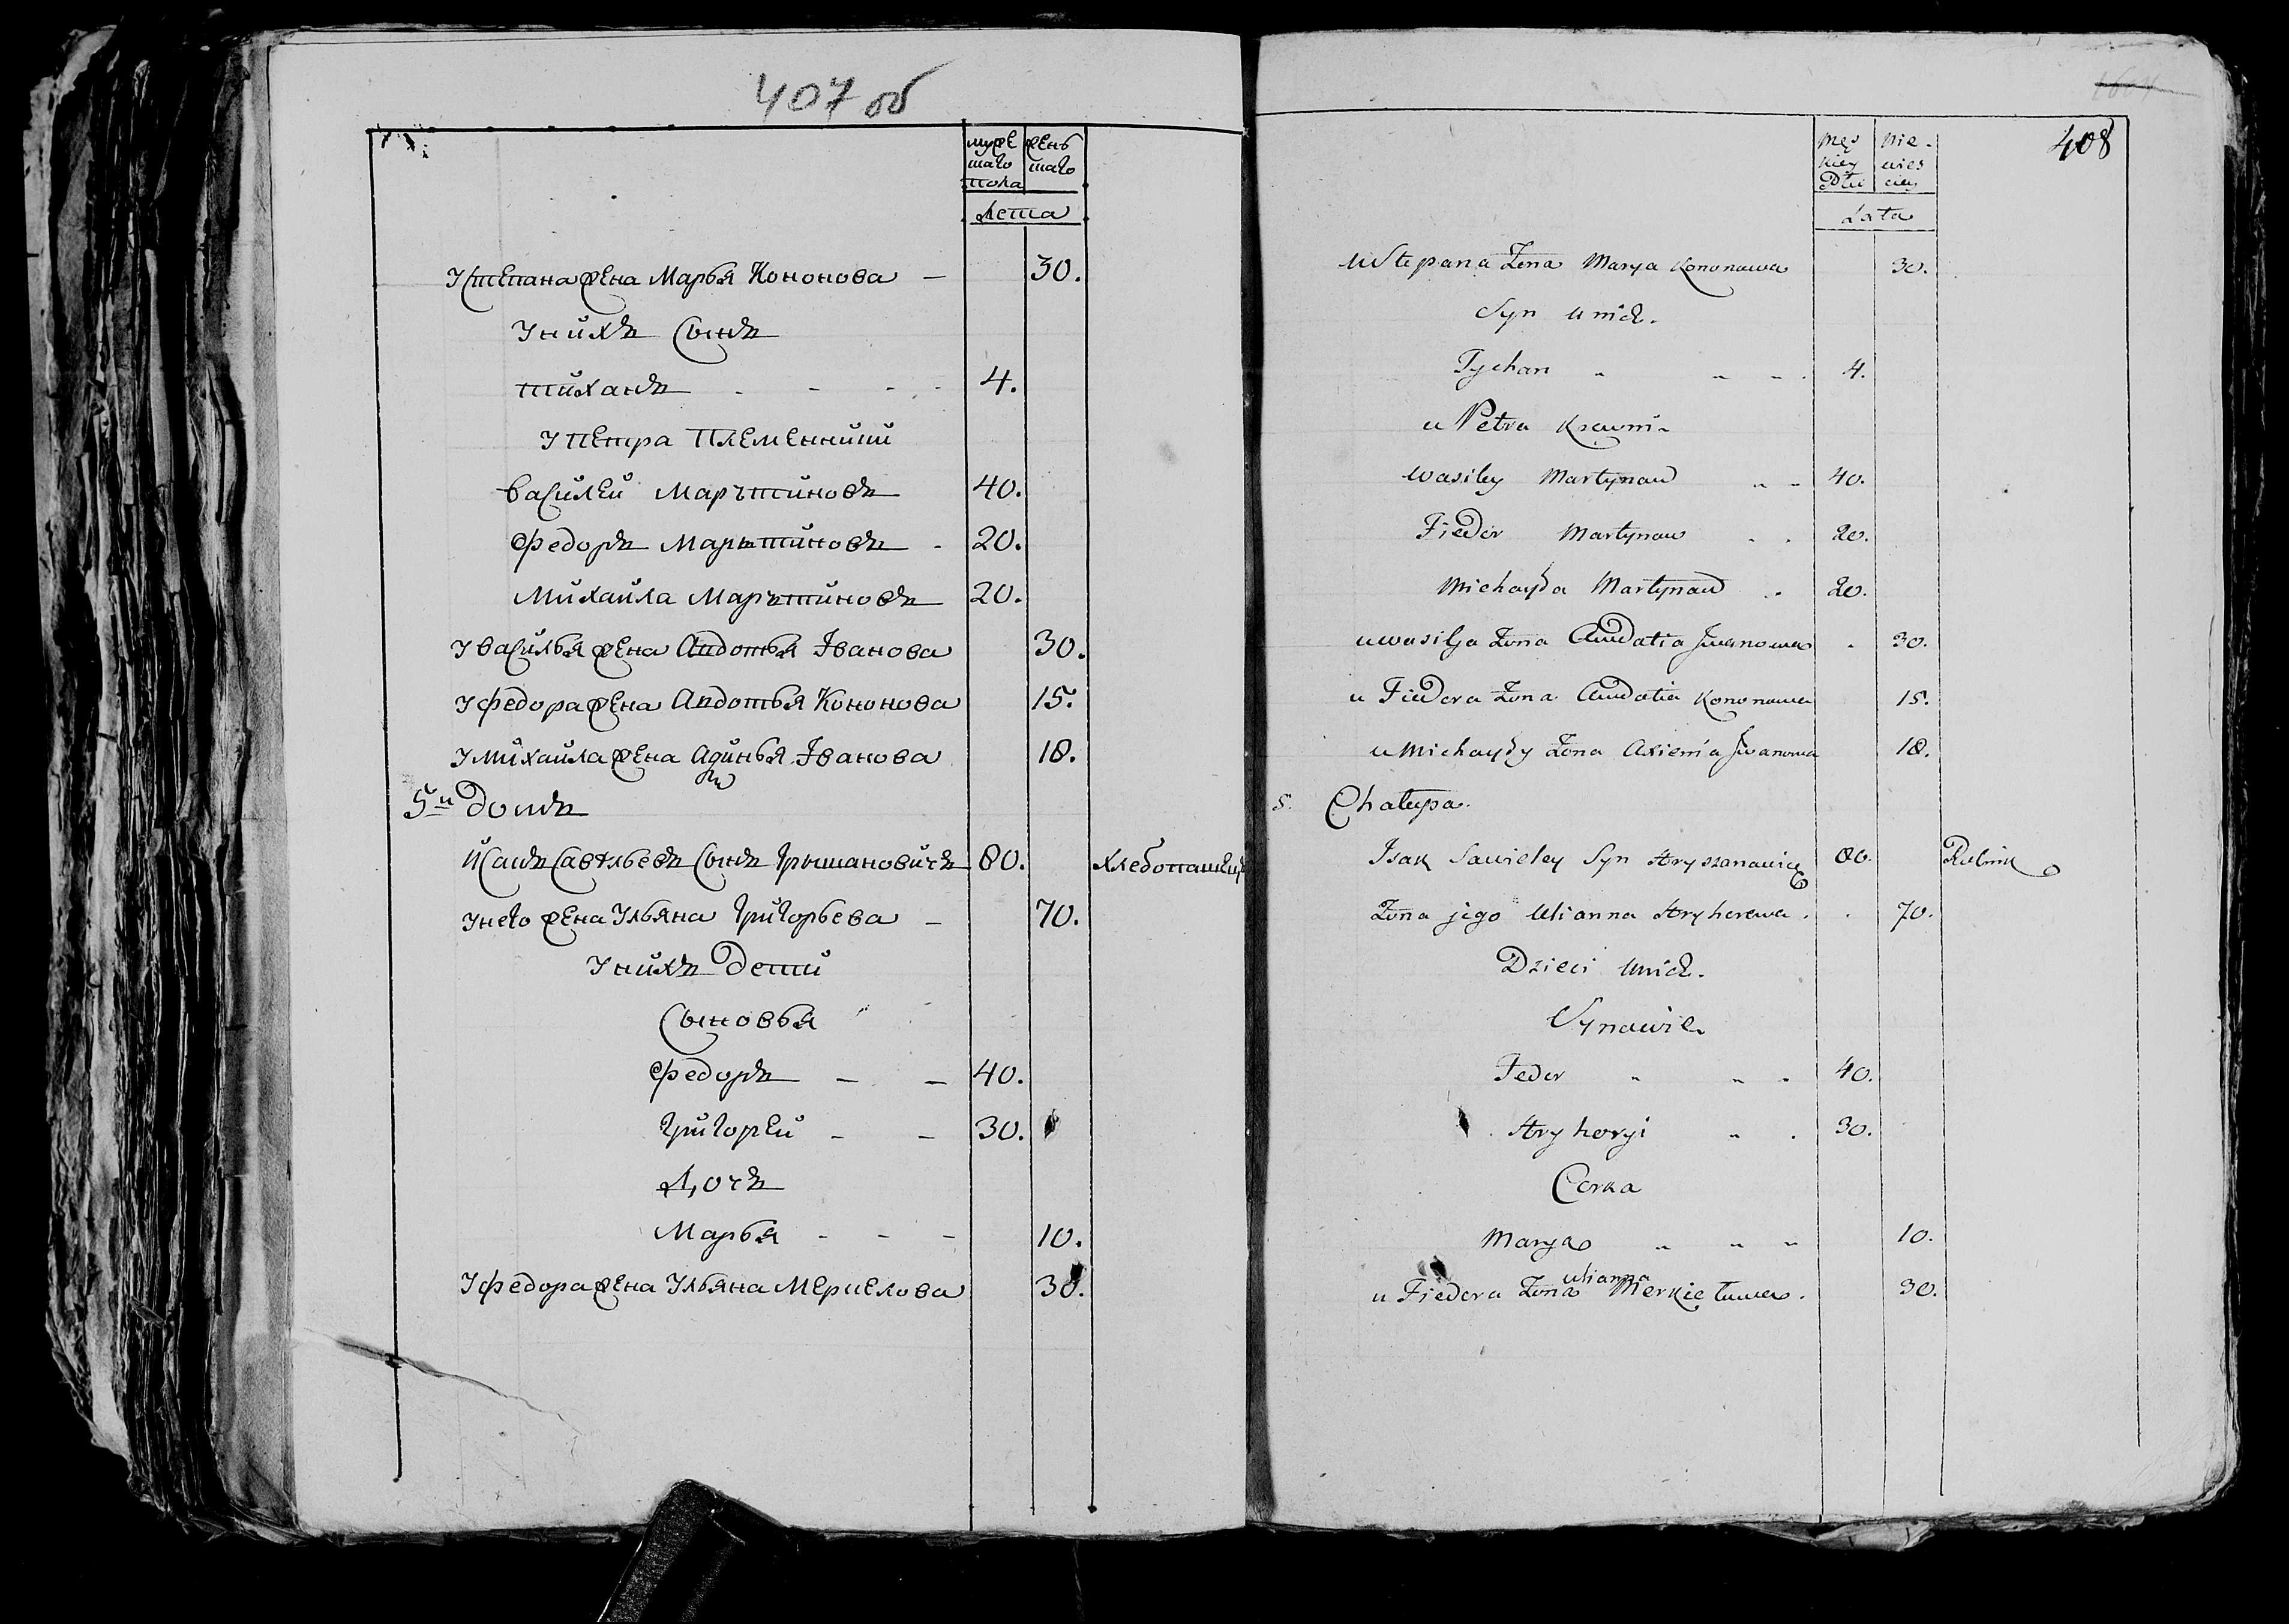 407 об
муже жень
шаго шаго
пола
лета
У Степана жена Марья Кононова - 30.
У нихъ сынъ
Тиханъ - - - 4.
У Петра племенники
Василей Мартиновъ 40.
Федоръ Мартиновъ - 20.
Михайла Мартиновъ 20.
У Василья жена Авдотья Іванова 30.
У Федора жена Авдотья Кононова 15.
У Михайла жена Іванова 18.
5й Домъ
Исакъ Савельевъ сынъ Грышановичъ 80. хлебопашец
У него жена Ульяна Григорьева - 70.
У нихъ дети
Сыновья
Федоръ - - 40.
Григорей - - 30.
Дочь
Марья - - - 10.
У Федора жена Ульяна Меркелова 30.
408
Męs Nie-
kiey wies
Płci ciey
Lata
u Stepana Żona Marya Kononowa 30.
Syn u nich.
Tychan " " " 4.
u Petra Krewni
Wasiley Martynow " - 40.
Fiedor Martynow . . 20.
Michayła Martynow .. 20.
u Wasilja Żona Awdatia Jwanowa . 30.
u Fiedora Żona Awdatia Kononowa 15.
u Michayły Żona Axienia Jwanowa 18.
5. Chałupa.
Isak Sawieley Syn Hryszanowicz 80. Rolnik
Żona jego Ulianna Hryhorewa . . 70.
Dzieci u nich.
Synowie
Fedor " " . 40.
Hryhoryi " . 30.
Corka
Marya " " " 10.
u Fiedora Żona Ulianna Merkiełowa. 30.